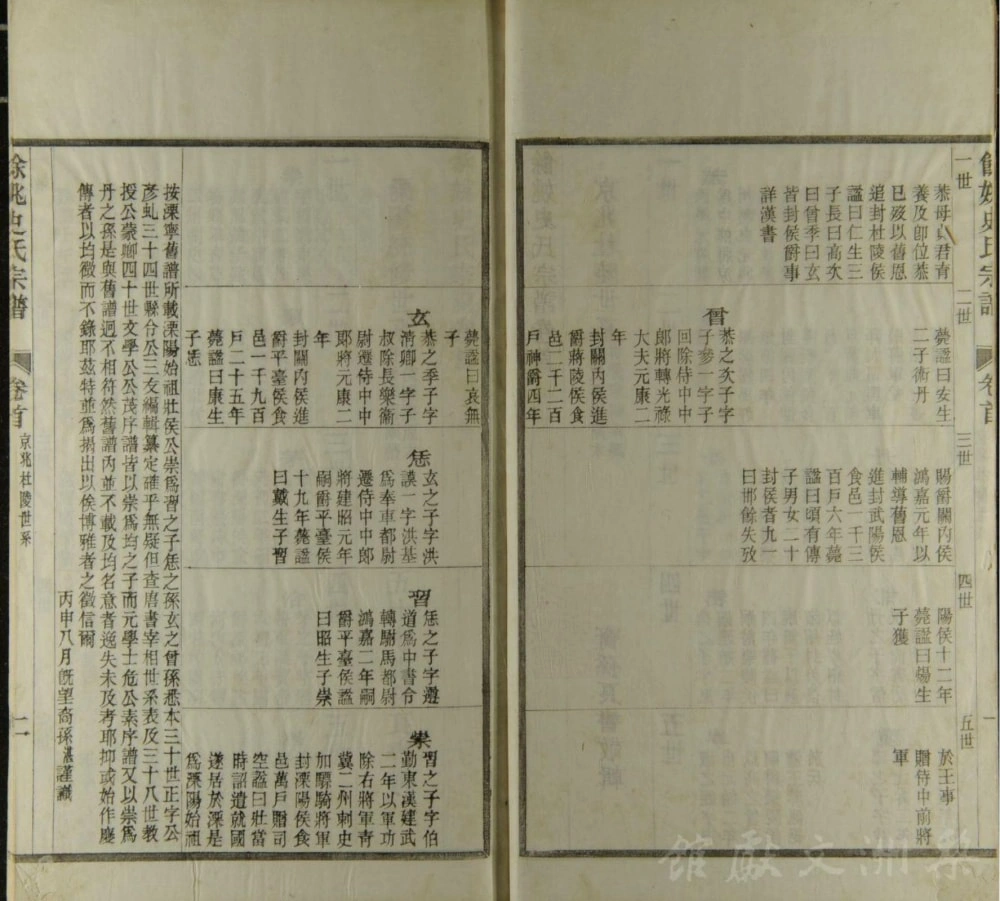 一世
恭母貞君青
養及卽位恭
已歿以舊恩
追封杜陵侯
謚曰仁生三
子長曰高次
曰曾季曰玄
皆封侯爵事
詳漢書
二世
薨謚曰安生
二子術丹
曾
恭之次子字
子參一字子
回除侍中中
郞將轉光祿
大夫元康二
年
封關內侯進
爵將陵侯食
邑二千二百
戶神爵四年
薨謚曰哀無
子
玄
恭之季子字
淸卿一字子
叔除長樂衞
尉遷侍中中
郞將元康二
年
封關內侯進
爵平臺侯食
邑一千九百
戶二十五年
薨謚曰康生
子恁
三世
賜爵關內侯
鴻嘉元年以
輔導舊恩
進封武陽侯
食邑一千三
百戶六年薨
謚曰頃有傳
子男女二十
封侯者九一
曰邯餘失攷
恁
玄之子字洪
謨一字洪基
爲奉車都尉
遷侍中中郞
將建昭元年
嗣爵平臺侯
十九年薨謚
曰戴生子習
四世
陽侯十二年
薨謚曰煬生
子獲
習
恁之子字遵
道爲中書令
轉駙馬都尉
鴻嘉二年嗣
爵平臺侯謚
曰昭生子崇
五世
於王事
贈侍中前將
軍
崇
習之子字伯
勤東漢建武
二年以軍功
除右將軍靑
冀二州刺史
加驃騎將軍
封溧陽侯食
邑萬戶贈司
空謚曰壯當
時詔遣就國
遂居於溧是
爲溧陽始祖
按溧寧舊譜所載溧陽始祖壯侯公崇爲習之子恁之孫玄之曾孫悉本三十世正字公
彥虬三十四世縣令公三友編輯纂定確乎無疑但查唐書宰相世系表及三十八世教
授公蒙卿四十世文學公公茂序譜皆以崇爲均之子而元學士危公素序譜又以崇爲
丹之孫是與舊譜迥不相符然舊譜內並不載及均名意者逸失未及考耶抑或始作塵
傳者以均徵而不錄耶茲特並爲揭出以俟博雅者之徵信爾
丙申八月旣望裔孫湛謹識
餘姚史氏宗譜
卷首
京兆杜陵世系
二
餘姚史氏宗譜
卷首
梨洲文獻館